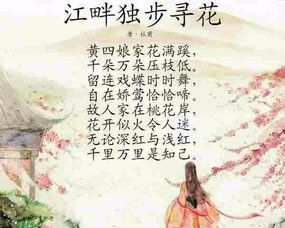 江畔独步寻花
唐·杜甫
黄四娘家花满蹊，
千朵万朵压枝低。
留连戏蝶时时舞，
自在娇莺恰恰啼。
故人家在桃花岸，
花开似火令人迷。
无论深红与浅红，
千里万里是知己。